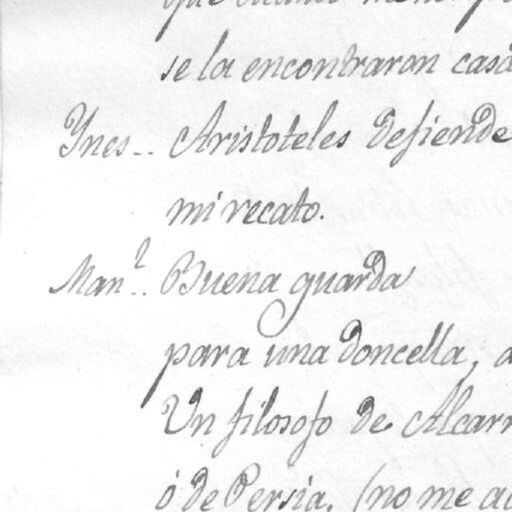 se la encontraran casa
Ynes.. Aristoteles defiende
mi recato.
Man.l.. Buena guarda
para una doncella, a
Un filosofo de Alcarr
ó de Persia. (no me a